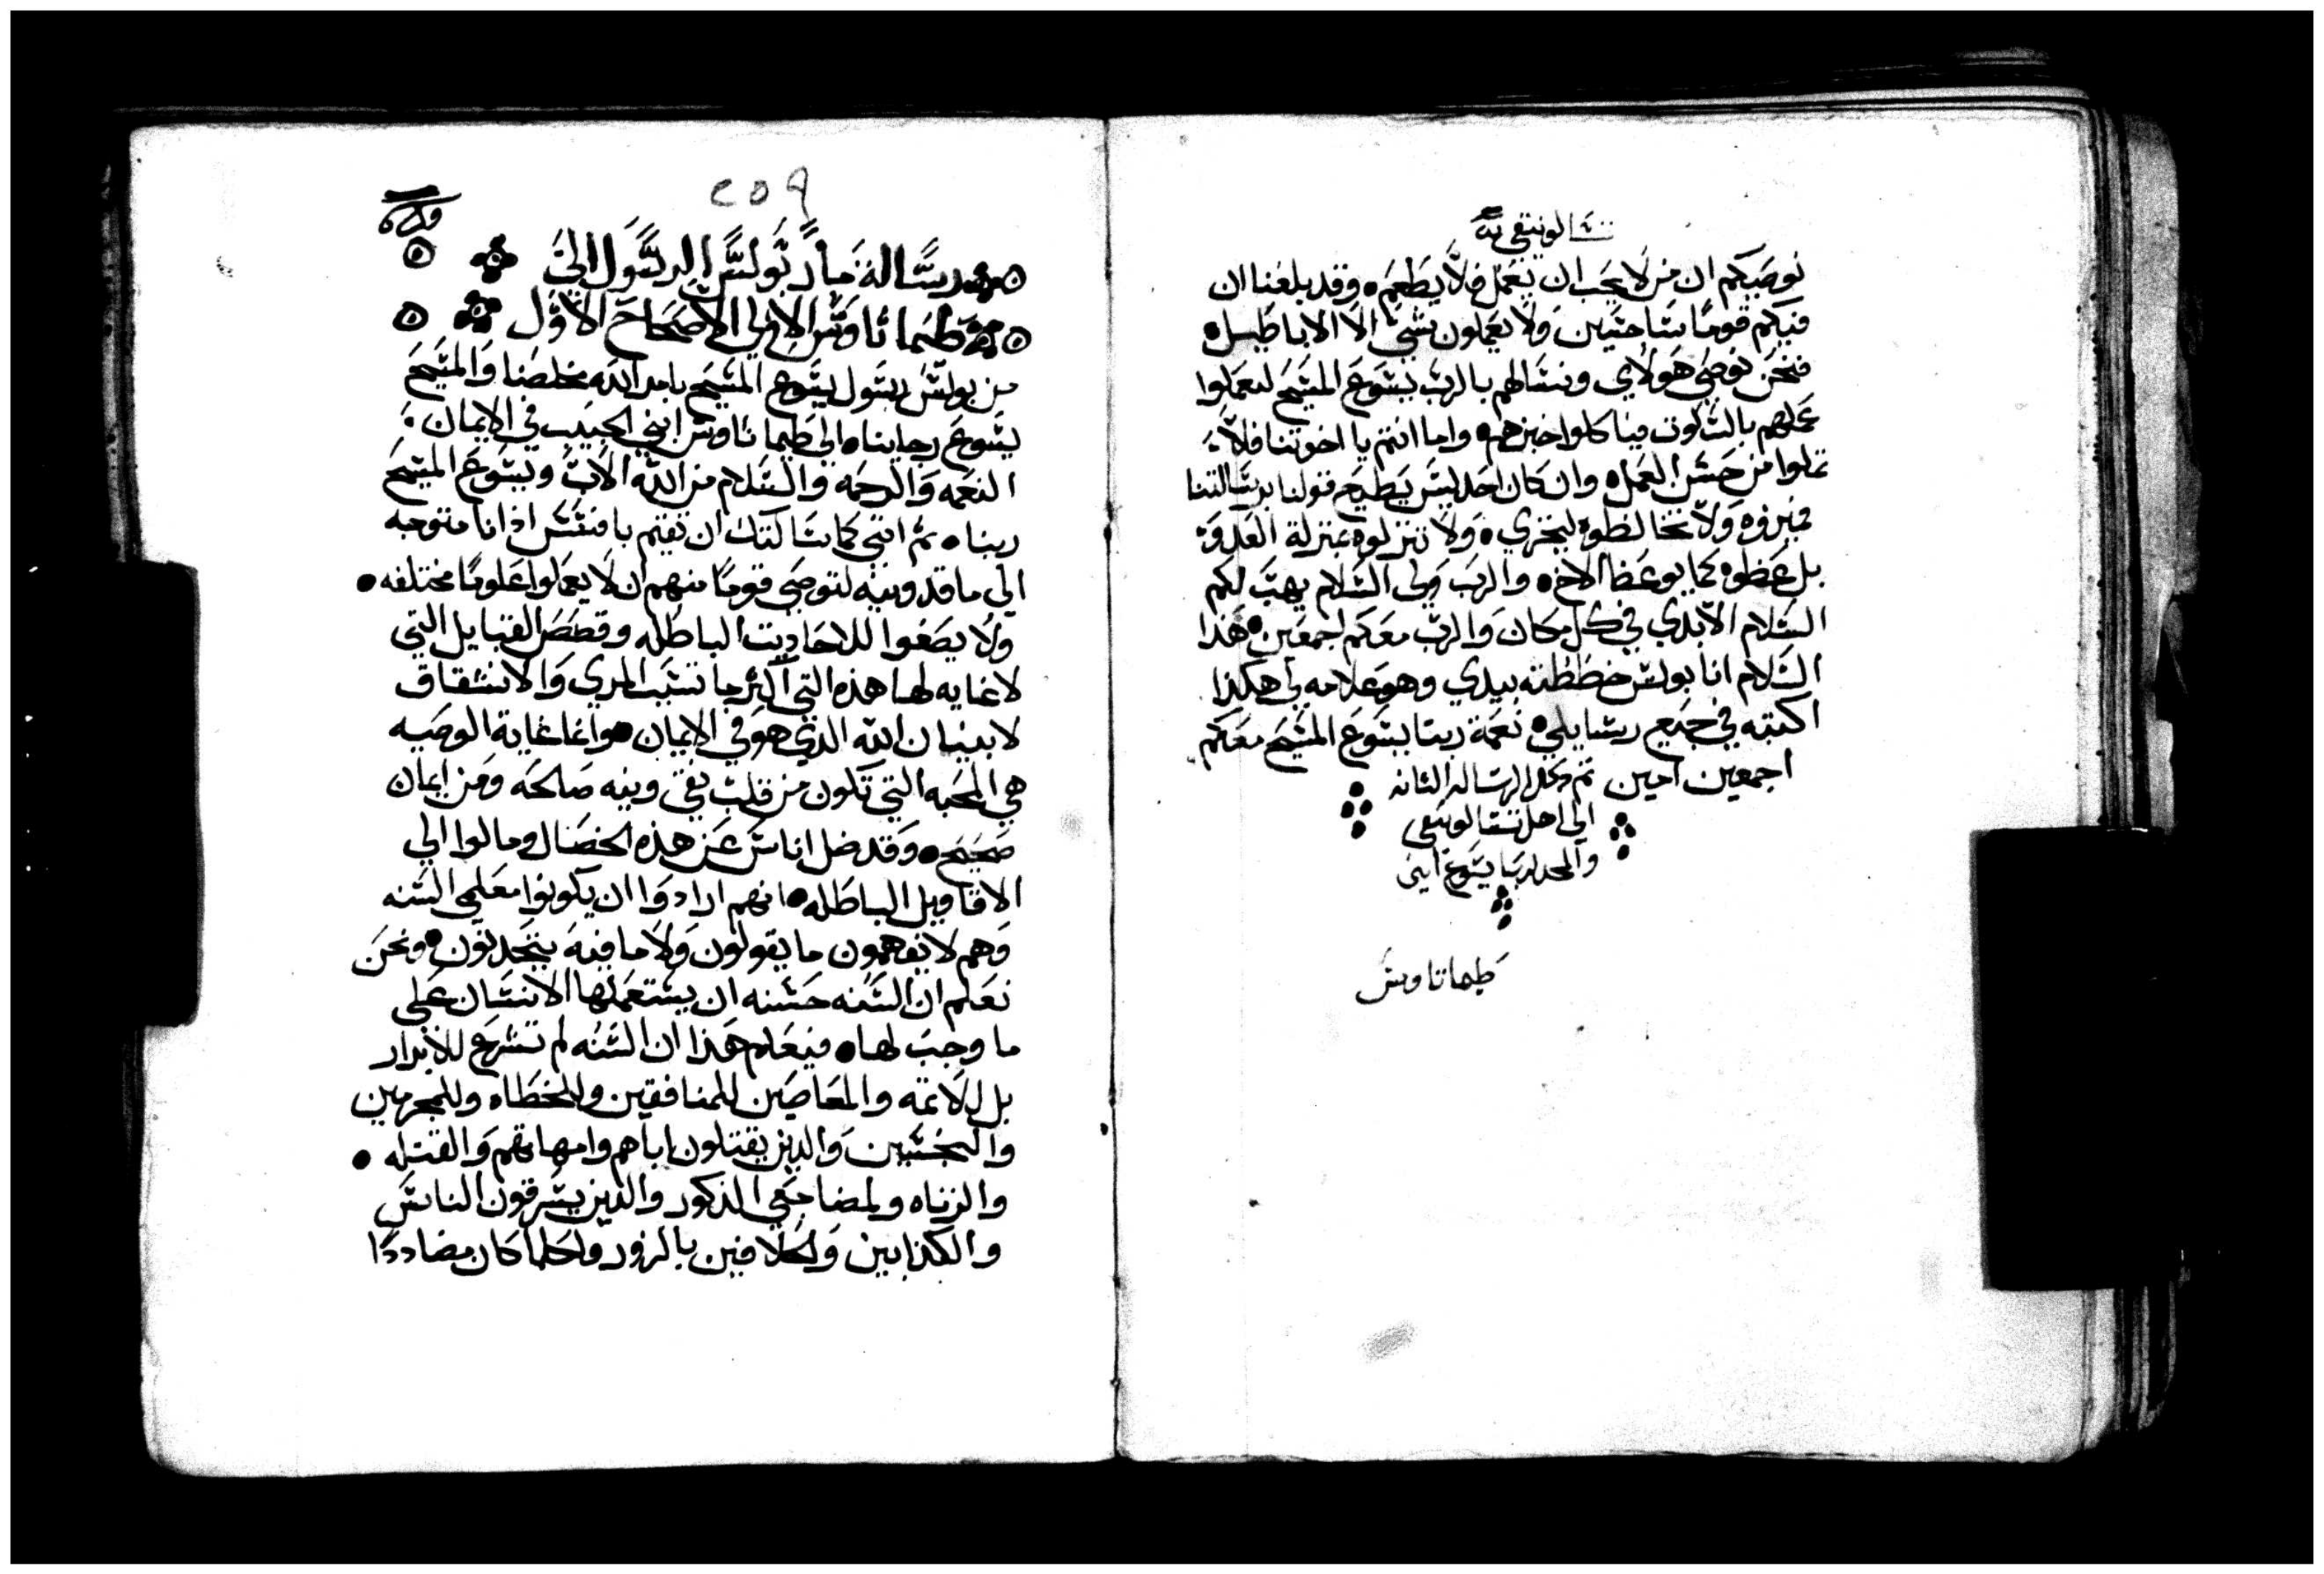 تسالونيقي
نوصيكم ان من لا يحب ان يعمل فلا يطعم • وقد بلغنا ان
فيكم قوما ساحتين ولا يعملون بشي الا الاباطيل •
فنحن نوصي هولاي ونسالهم بالرب يسوع المسيح ليعملوا
عملهم بالسكون وياكلوا خبزهم • واما انتم يا اخوتنا فلا
تملوا من حسن العمل • وان كان احد ليس يطيع قولنا برسالتنا
فميزوه ولا تخالطوه ليخزي • ولا تنزلوه بمنزلة العدو
بل عظوه كما يوعظ الاخ • والرب ولي السلام يهب لكم
السلام الابدي في كل مكان والرب معكم اجمعين • هذا
السلام انا بولس خططته بيدي وهو علامه لي هكذا
اكتبه في جميع رسايلي • نعمة ربنا يسوع المسيح معكم
اجمعين امين تم وكمل الرساله الثانيه
الي اهل تسالونيقي
والمجد لربنا يسوع امين
طيماتاوس
٢٥٩
رسالة مار بولس الرسول الي
طيماتاوس الاولي الاصحاح الاول
من بولس رسول يسوع المسيح بامر الله مخلصنا والمسيح
يسوع رجاينا • الي طيماتاوس ابني الحبيب في الايمان
النعمه والرحمه والسلام من الله الاب ويسوع المسيح
ربنا • ثم انني كما سالتك ان تقيم بافسس اذ انا متوجه
الي ماقدونيه لتوصي قوما منهم ان لا يعملوا علوما مختلفه •
ولا يصغوا للاحاديث الباطله وقصص القبايل التي
لا غايه لها هذه التي اكثر ما تسبب المري والانشقاق
لا بنيان الله الذي هو في الايمان • وانما غاية الوصيه
هي المحبه التي تكون من قلب نقي ونيه صالحه ومن ايمان
صحيح • وقد ضل اناس عن هذه الخصال ومالوا الي
الاقاويل الباطله • انهم ارادوا ان يكونوا معلمي السنه
وهم لا يفهمون ما يقولون ولا ما فيه يتحدثون • ونحن
نعلم ان السنه حسنه ان يستعملها الانسان علي
ما وجب لها • فيعلم هذا ان السنه لم تشرع للابرار
بل للاثمه والمعاصين للمنافقين وللخطاه وللمجرمين
والنجسين والذين يقتلون اباهم وامهاتهم والقتله •
والزناه ولمضاجعي الذكور والذين يسرقون الناس
والكذابين والحلافين بالزور ولكلما كان مضاددا